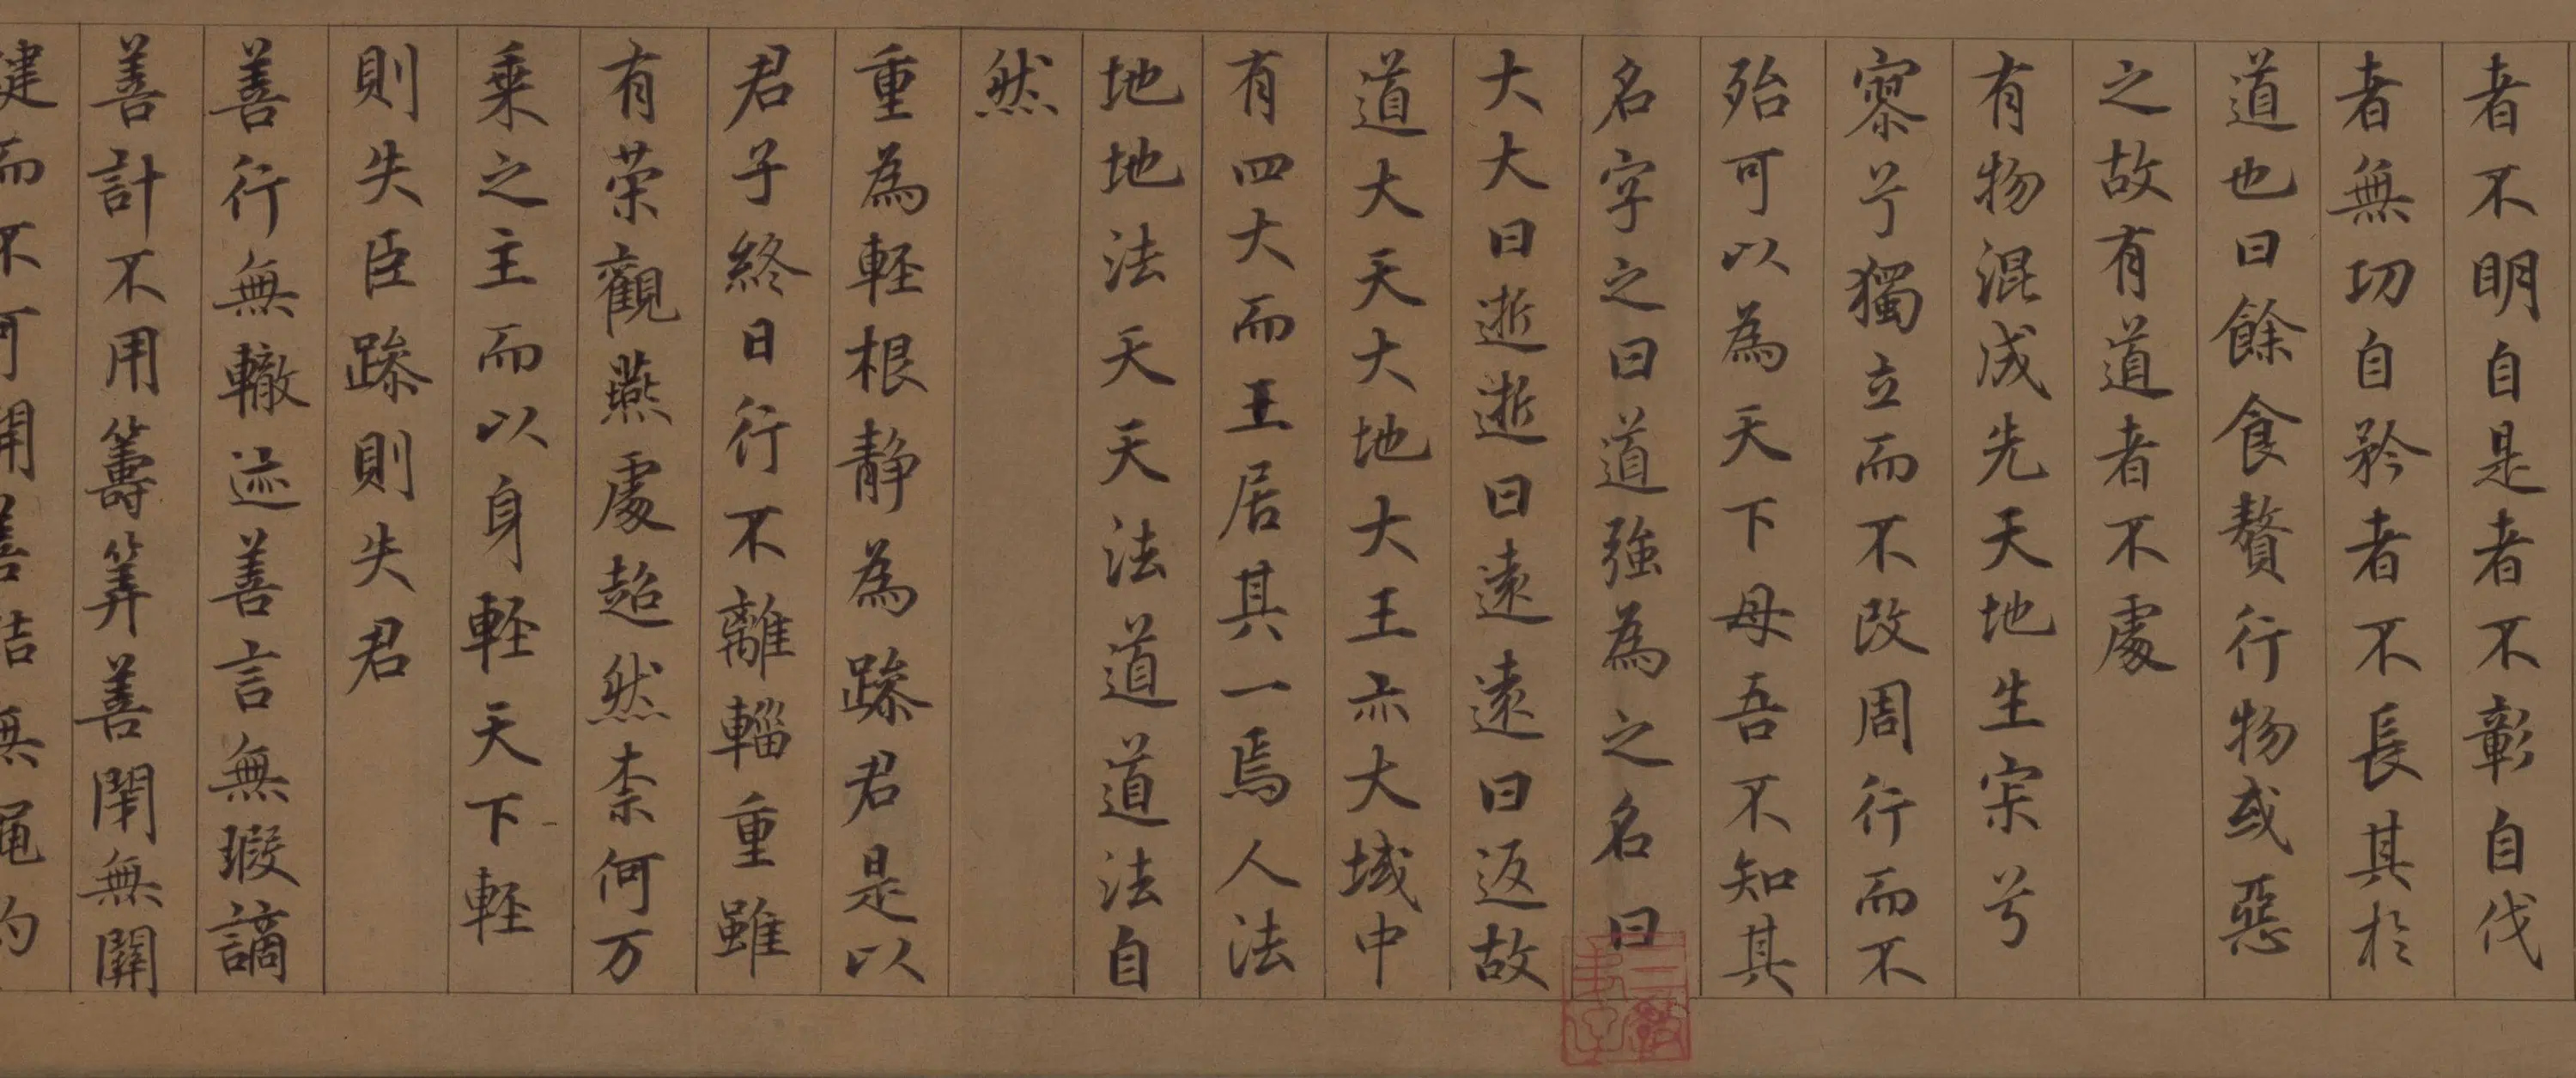 者不明自是者不彰自伐
者無功自矜者不長其於
道也曰餘食贅行物或惡
之故有道者不處
有物混成先天地生宋兮
寥兮獨立而不改周行而不
殆可以為天下母吾不知其
名字之曰道強為之名曰
大大曰逝逝曰遠遠曰返故
道大天大地大王亦大域中
有四大而王居其一焉人法
地地法天天法道道法自
然
重為輕根静為躁君是以
君子終日行不離輜重雖
有荣觀燕處超然柰何万
乗之主而以身輕天下輕
則失臣躁則失君
善行無轍迹善言無瑕謫
善計不用籌筭善閇無關
揵而不可開善結無繩約